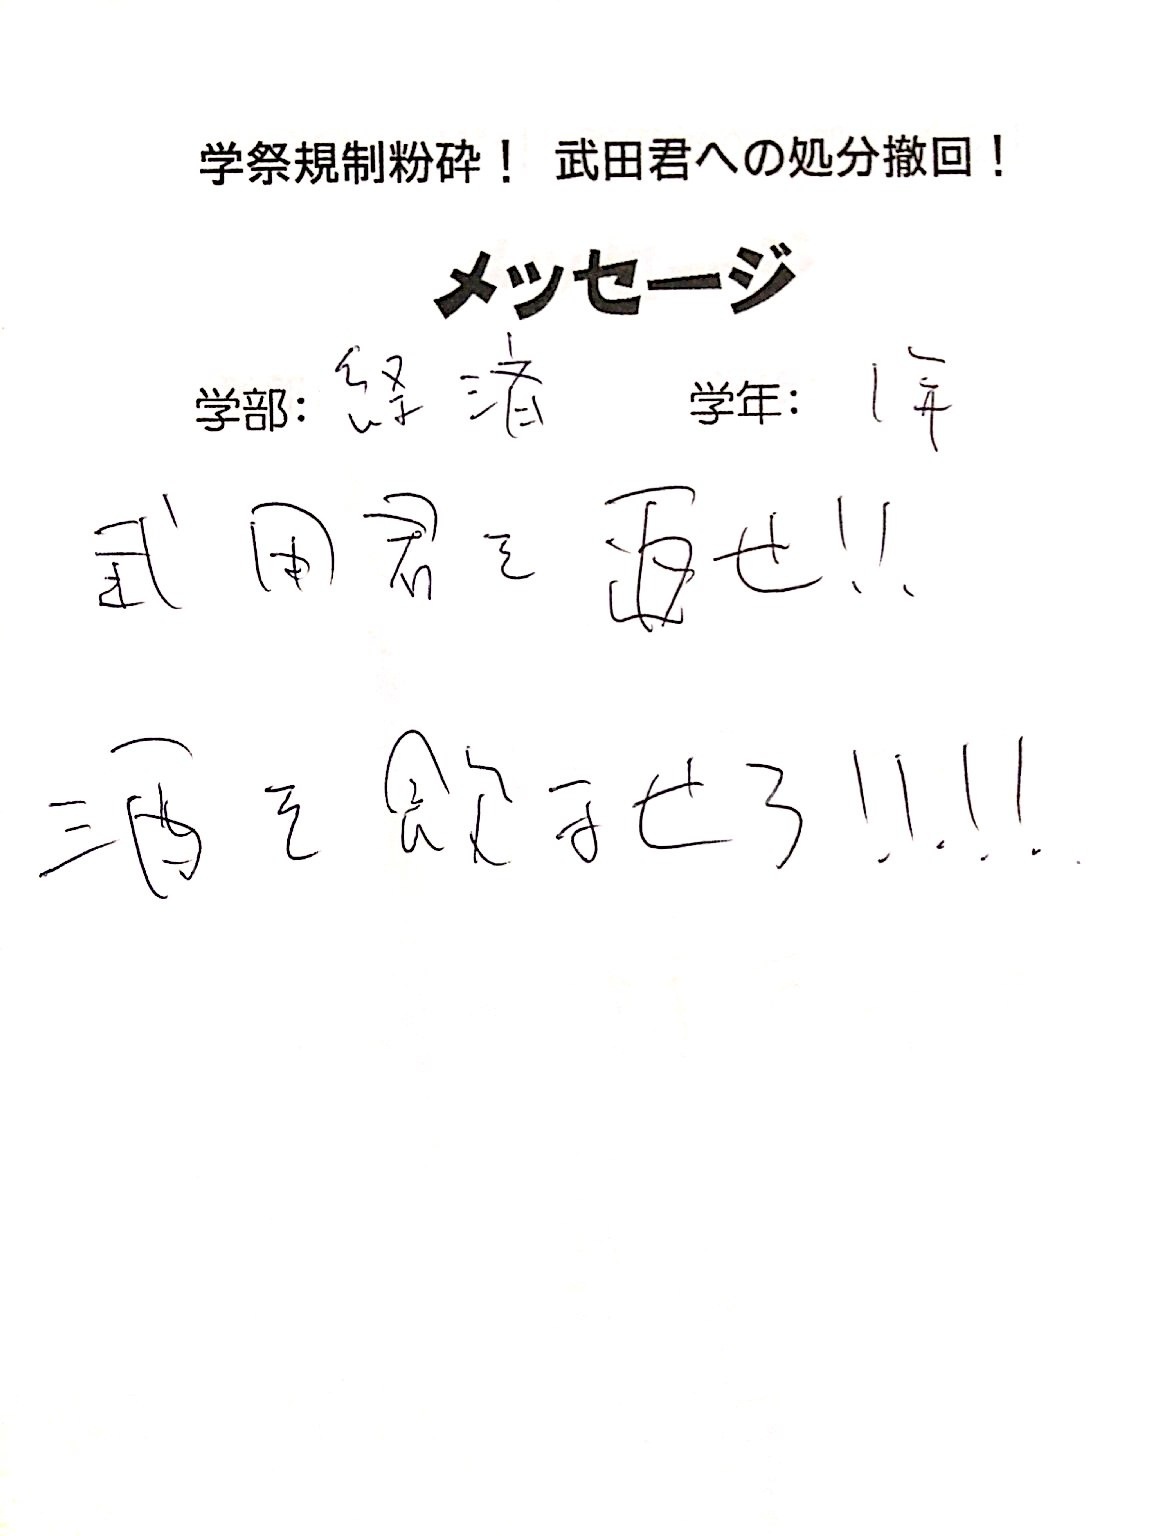 学祭規制粉砕！ 武田君への処分撤回！
メッセージ
学部：経済 学年：1年
武田君を返せ!!
酒を飲ませろ!!!!